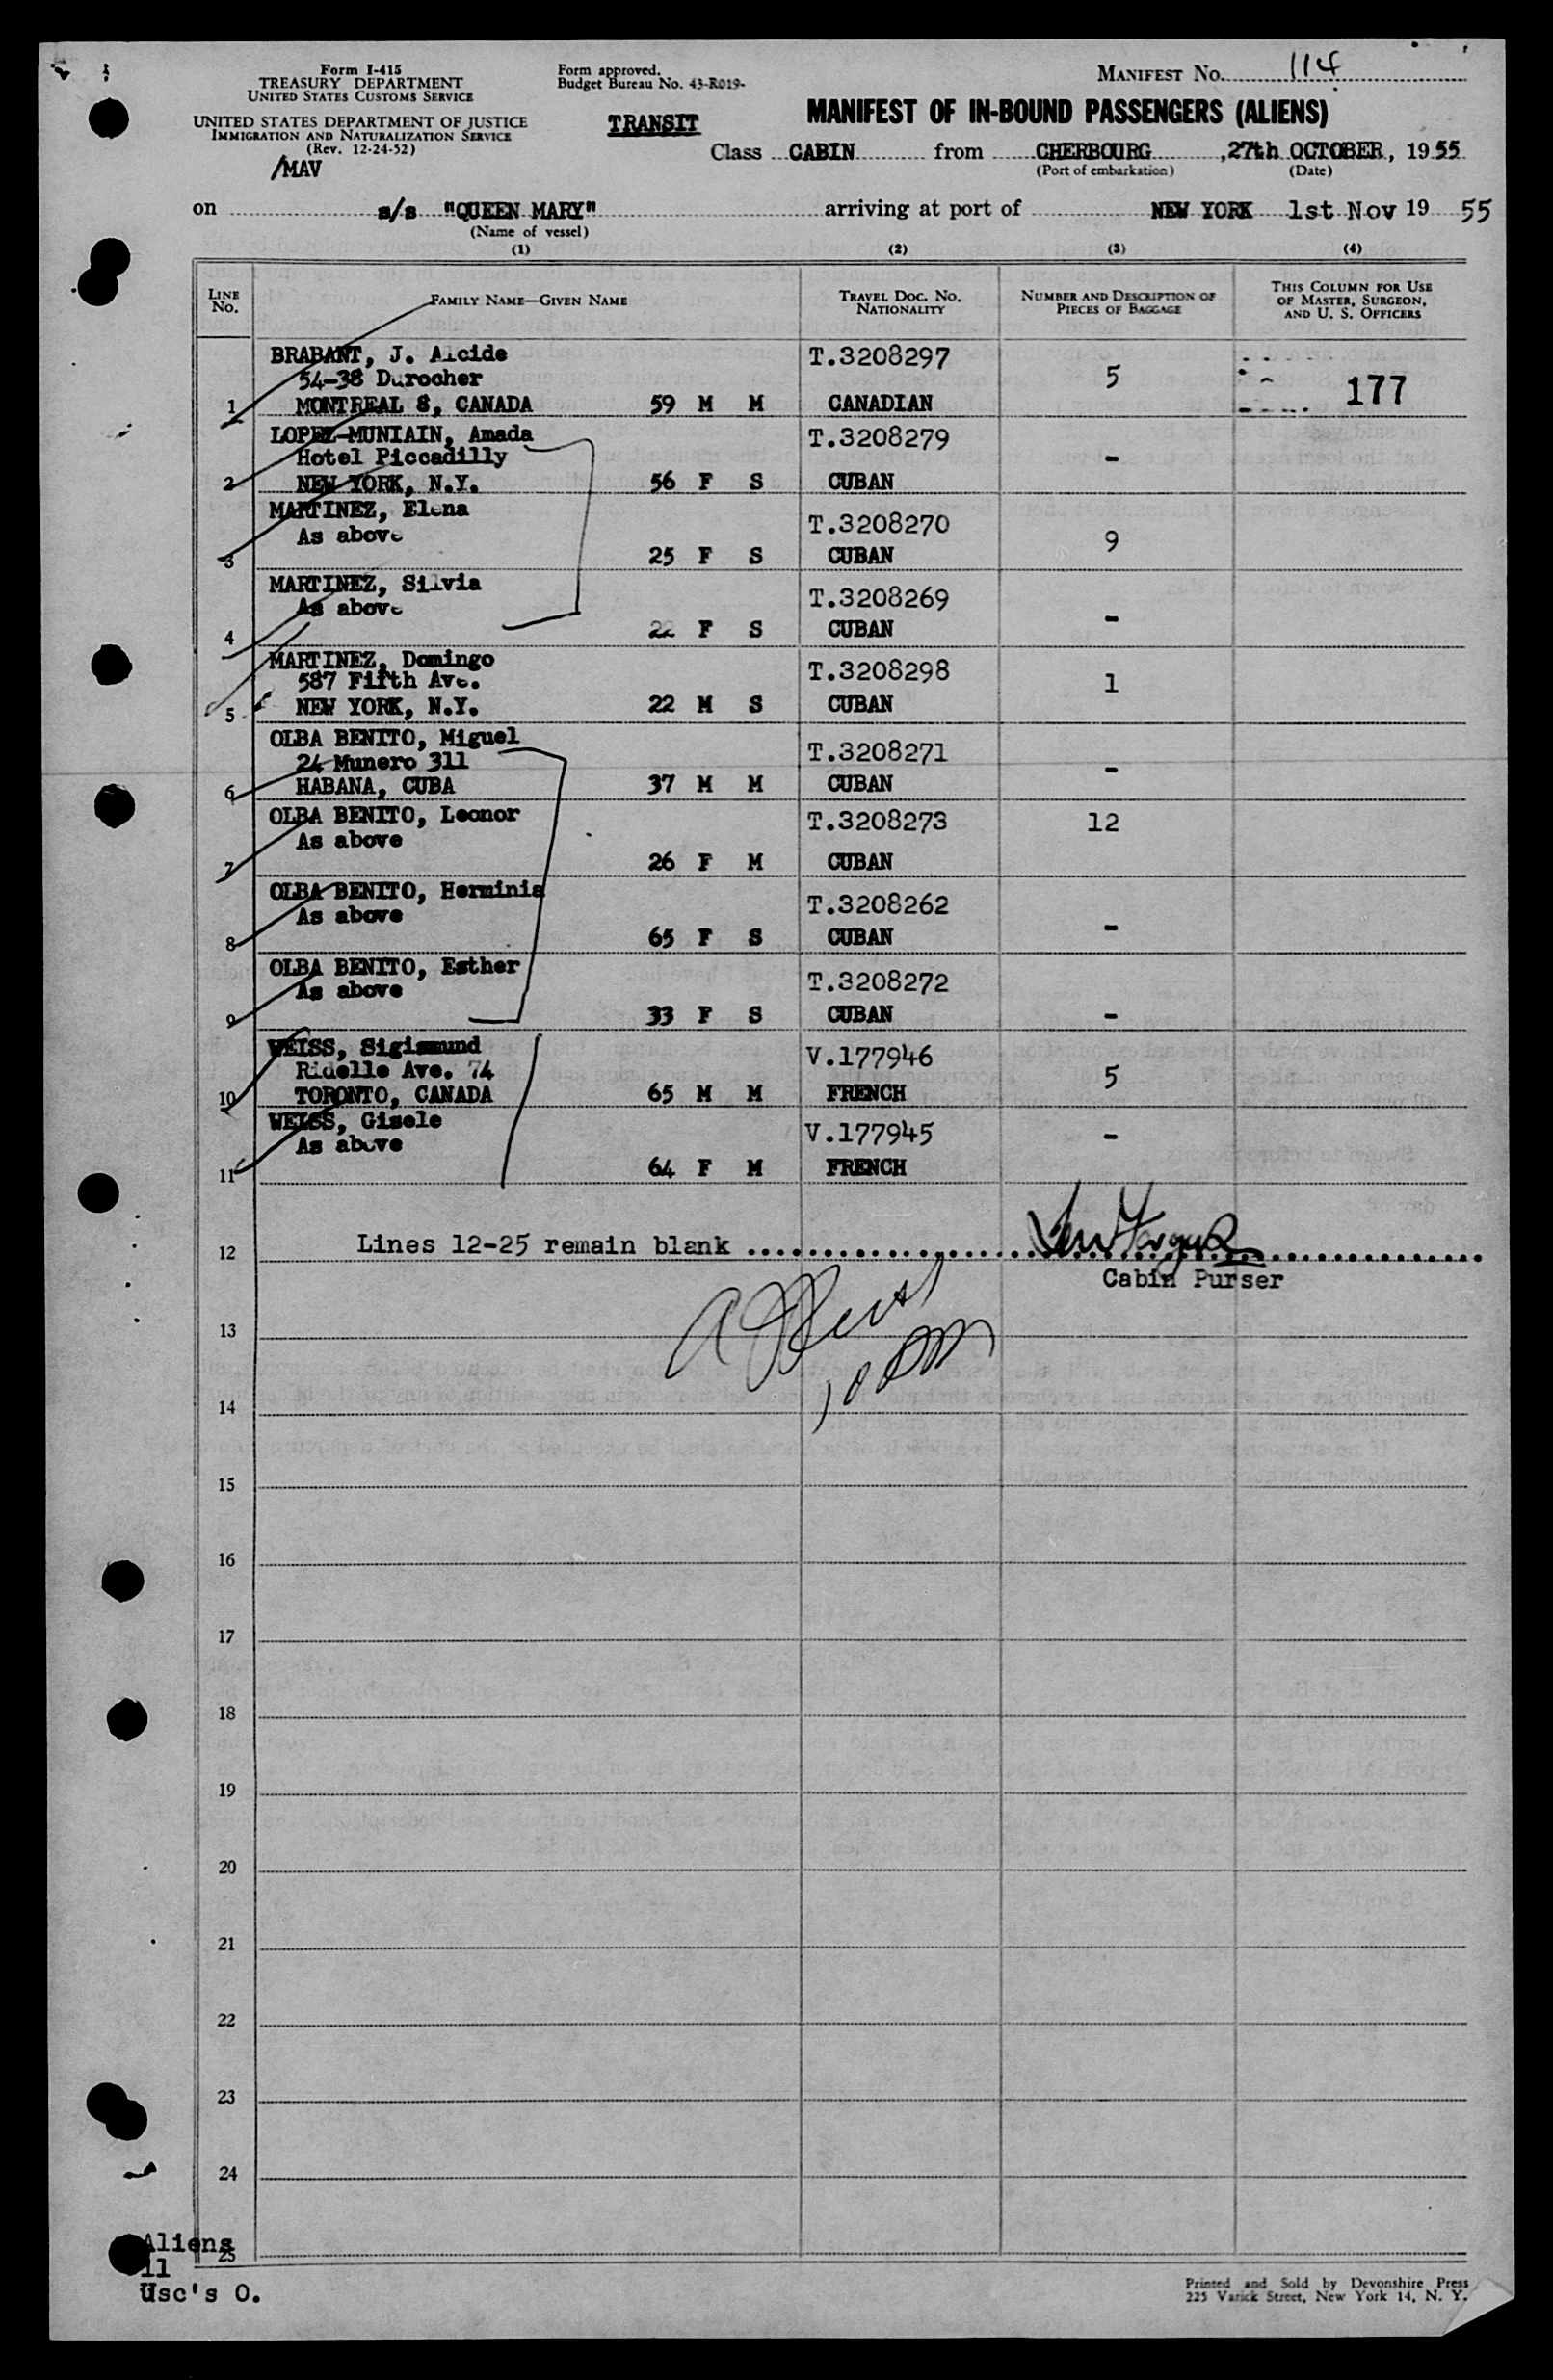 Form I-415
TREASURY DEPARTMENT
UNITED STATES CUSTOMS SERVICE
UNITED STATES DEPARTMENT OF JUSTICE
IMMIGRATION AND NATURALIZATION SERVICE
(Rev. 12-24-52)
/MAV
Form approved.
Budget Bureau No. 43-R019-
TRANSIT
MANIFEST No. 114
MANIFEST OF IN-BOUND PASSENGERS (ALIENS)
Class CABIN from CHERBOURG, 27th OCTOBER, 1955
(Port of embarkation) (Date)
on s/s "QUEEN MARY" arriving at port of NEW YORK 1st Nov 19 55
(Name of vessel)
(1) (2) (3) (4)
LINE No. FAMILY NAME—GIVEN NAME TRAVEL DOC. NO. NATIONALITY NUMBER AND DESCRIPTION OF PIECES OF BAGGAGE THIS COLUMN FOR USE OF MASTER, SURGEON, AND U. S. OFFICERS
BRABANT, J. Alcide T.3208297
54-38 Durocher 5
1 MONTREAL 8, CANADA 59 M M CANADIAN 177
LOPEZ-MUNIAIN, Amada T.3208279
Hotel Piccadilly -
2 NEW YORK, N.Y. 56 F S CUBAN
MARTINEZ, Elena T.3208270
As above 9
3 25 F S CUBAN
MARTINEZ, Silvia T.3208269
As above -
4 22 F S CUBAN
MARTINEZ, Domingo T.3208298
587 Fifth Ave. 1
5 NEW YORK, N.Y. 22 M S CUBAN
OLBA BENITO, Miguel T.3208271
24 Munero 311 -
6 HABANA, CUBA 37 M M CUBAN
OLBA BENITO, Leonor T.3208273 12
As above
7 26 F M CUBAN
OLBA BENITO, Herminia T.3208262
As above -
8 65 F S CUBAN
OLBA BENITO, Esther T.3208272
As above
9 33 F S CUBAN -
WEISS, Sigismund V.177946
Ridelle Ave. 74 5
10 TORONTO, CANADA 65 M M FRENCH
WEISS, Gisele V.177945
As above -
11 64 F M FRENCH
12 Lines 12-25 remain blank
Cabin Purser
13
14
15
16
17
18
19
20
21
22
23
24
25
Aliens
11
Usc's 0.
Printed and Sold by Devonshire Press
225 Varick Street, New York 14, N. Y.